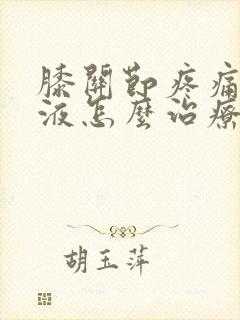 膝關節疼痛
液怎麼治療
胡玉萍